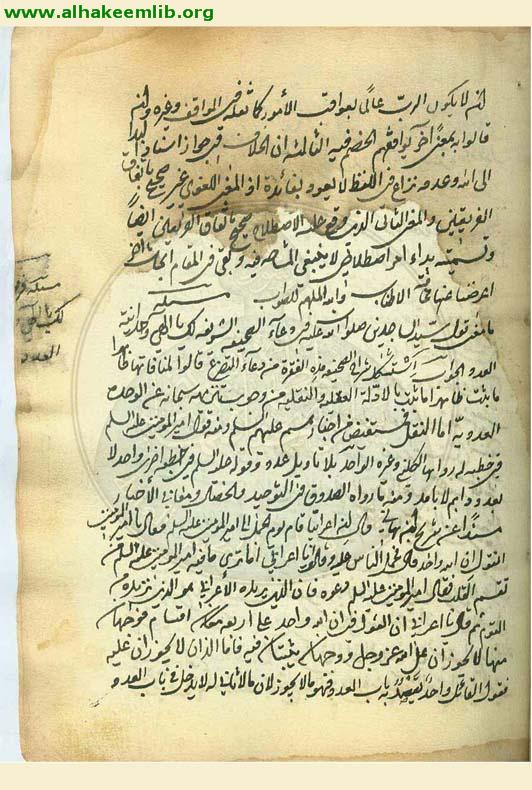 www.alhakeemlib.org
لئلا يكون الرب عالما بعواقب الأمور كما نقله في المواقف وغيره ولئن
قالوا به بمعنى آخر يوافقهم الخصم فيه الثالث ان الخلاف في جواز اسناد البدا
الى الله وعدمه نزاع في اللفظ لا يعود بفائدة اذ المعنى اللغوي غير صحيح باتفاق
الفريقين والمعنى الثاني الذي وقع عليه الاصطلاح صحيح باتفاق الفريقين ايضا
وتسميته بداء امر اصطلاحي لا ينبغي المشاحة فيه وبقي في المقام ابحاث
اعرضنا عنها والله الملهم للصواب مسئلة
ما معنى قول سيد الساجدين صلوات الله عليه في دعاء الصحيفة الشريفة لك يا الهي وحدانية
العدد الجواب الصحيفة هذه الفقرة من دعاء قالوا لمنافاتها ظاهرا
ما ثبت بالادلة العقلية والنقلية من وجوب تنزيهه سبحانه عن الوحدة
العددية اما النقل فمستفيض من اخبارهم عليهم السلم منه قول امير المؤمنين عليه السلم
في خطبة رواها وغيره الواحد بلا تاويل عدد وقوله عليه السلم في خطبة اخرى واحد لا
بعدد ودائم لا بأمد ومنه ما رواه الصدوق في التوحيد والخصال ومعاني الأخبار
مسندا عن شريح بن هاني قال ان اعرابيا قام يوم الجمل الى امير المؤمنين عليه السلم فقال يا امير المؤمنين
اتقول ان الله واحد قال فحمل الناس عليه وقالوا يا اعرابي اما ترى ما فيه امير المؤمنين عليه السلم من
تقسم القلب فقال امير المؤمنين عليه السلم دعوه فان الذي يريده الأعرابي هو الذي نريده من
القوم ثم قال يا اعرابي ان القول في ان الله واحد على اربعة اقسام فوجهان
منها لا يجوزان على الله عز وجل ووجهان يثبتان فيه فاما اللذان لا يجوزان عليه
فقول القائل واحد يقصد به باب العدد فهو ما لا يجوز لان ما لا ثاني له لا يدخل في باب العدد